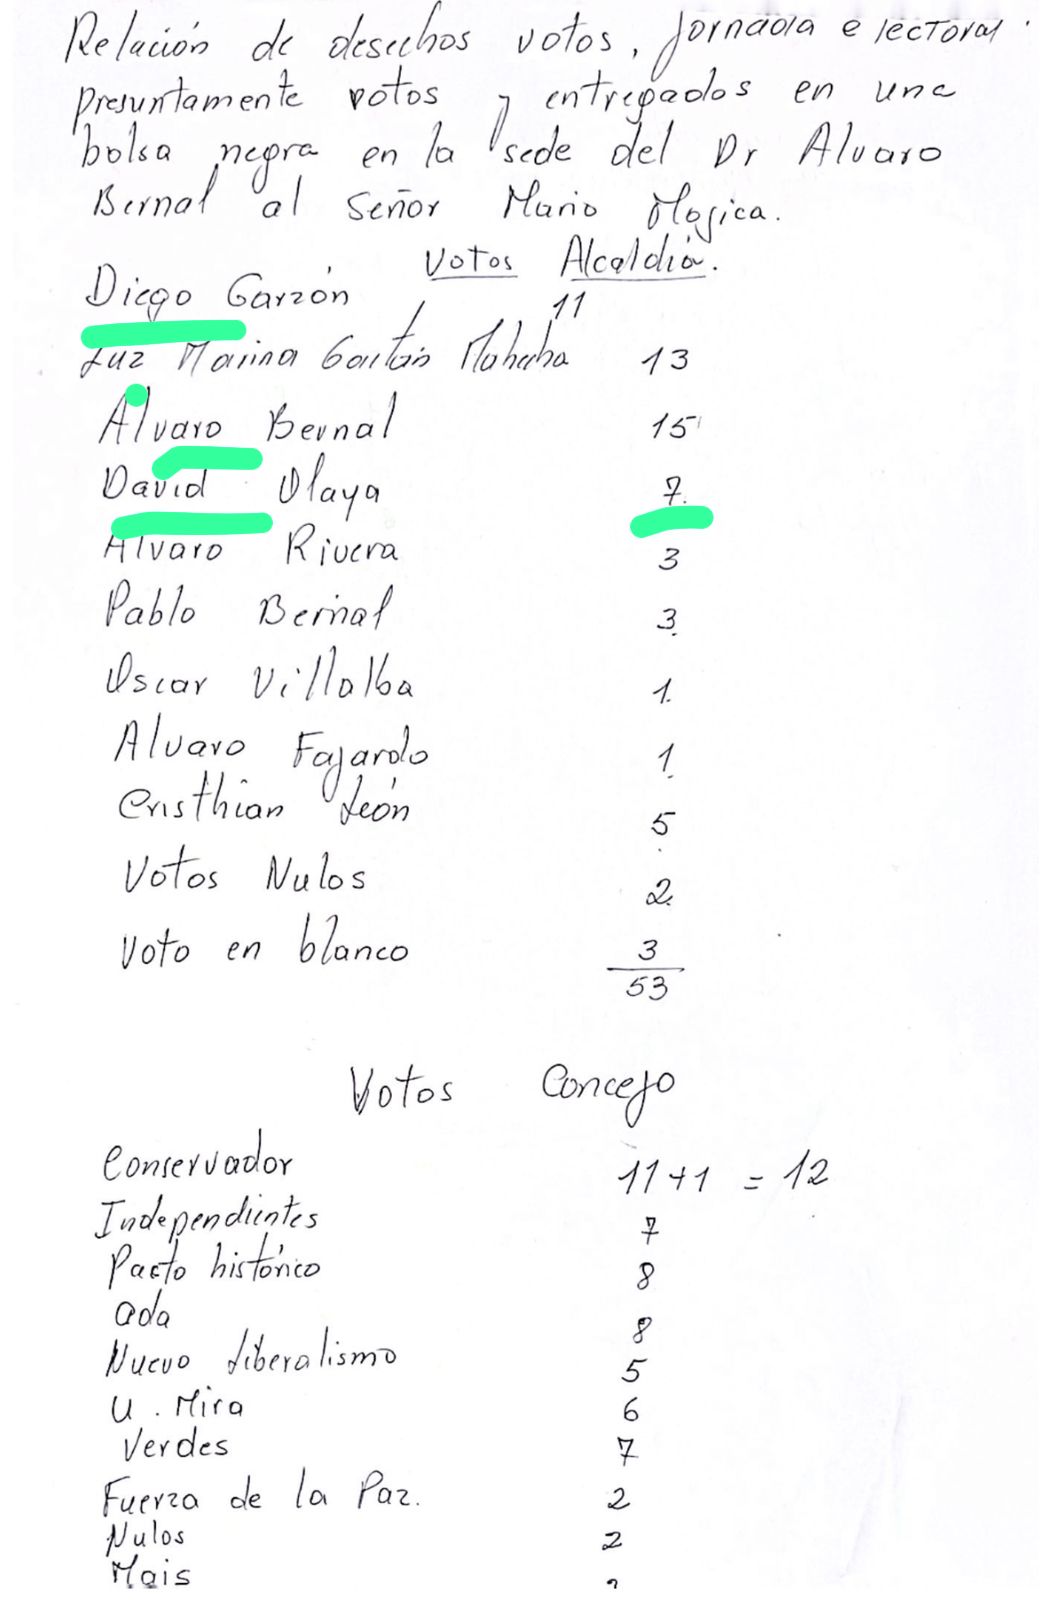 Relación de desechos votos, jornada electoral.
presuntamente votos y entregados en una
bolsa negra en la sede del Dr Alvaro
Bernal al Señor Mario Mogica.
Votos Alcaldía.
Diego Garzón 11
Luz Marina Gaitán Mahecha 13
Alvaro Bernal 15
David Olaya 7.
Alvaro Rivera 3
Pablo Bernal 3.
Oscar Villalba 1.
Alvaro Fajardo 1.
Cristhian León 5
Votos Nulos 2.
Voto en blanco 3
53
Votos Concejo
Conservador 11+1 = 12
Independientes 7
Pacto histórico 8
Ada 8
Nuevo Liberalismo 5
U. Mira 6
Verdes 7
Fuerza de la Paz. 2
Nulos 2
Mais